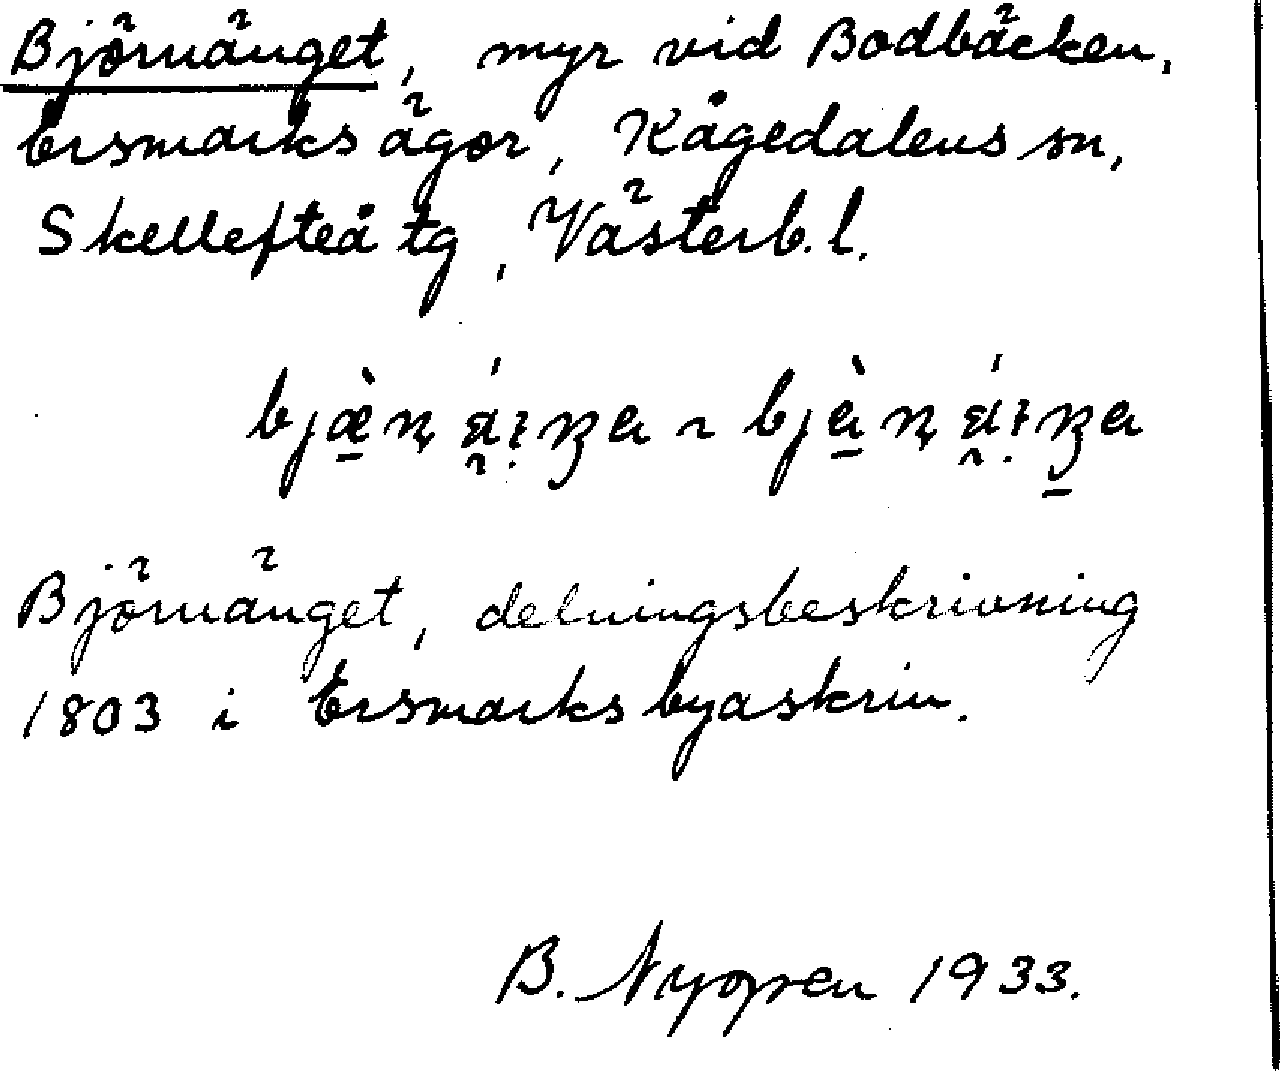 Björnänget, myr vid Bodbäcken,
Ersmarks ägor, Kågedalens sn,
Skellefteå tg, Västerb. l.
Björnänget, delningsbeskrivning
1803 i Ersmarks byaskrin.
B. Nygren 1933.